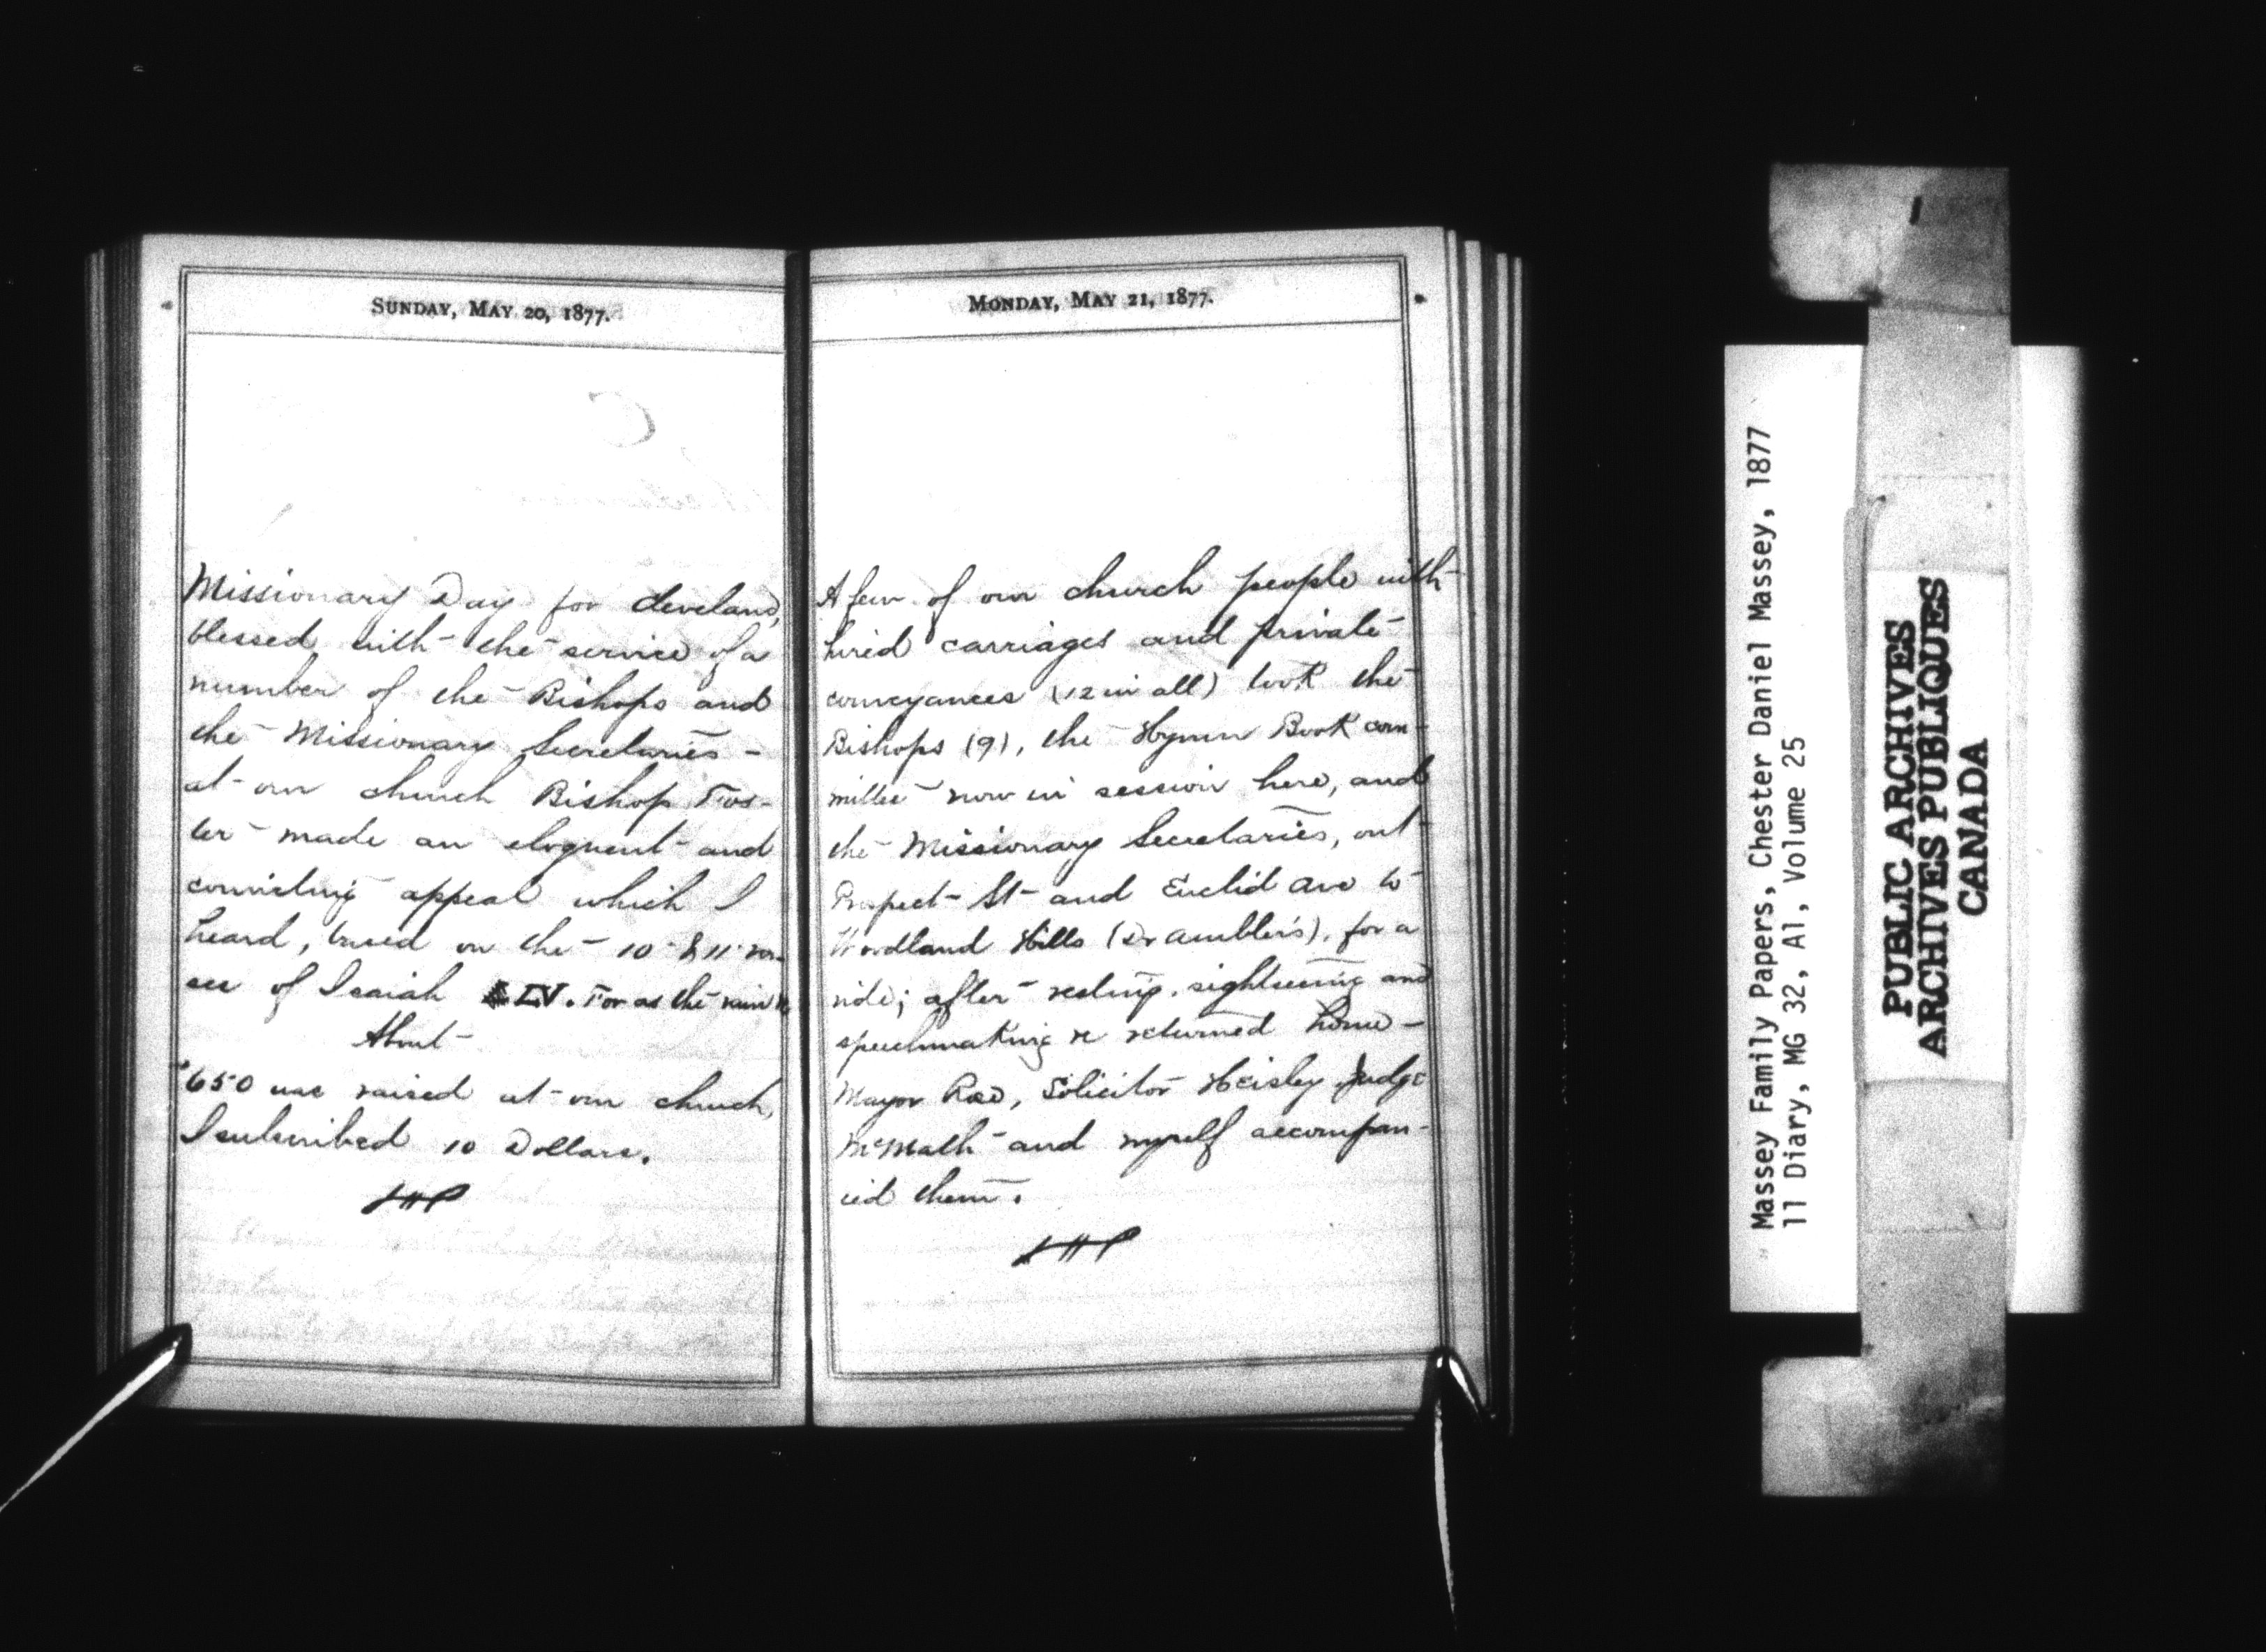 SUNDAY, MAY 20, 1877.
Missionary Day for Cleveland,
blessed with the service of a
number of the Bishops and
the Missionary Secretaries -
at our church Bishop Fos-
ter made an eloquent and
convicting appeal which I
heard, based on the 10 & 11 ver-
ses of Isaiah LV. For as the rain
About
$650 was raised at our church,
I subscribed 10 Dollars.
MONDAY, MAY 21, 1877.
A few of our church people with
hired carriages and private
conveyances (12 in all) took the
Bishops (9), the Hymn Book com-
mittee now in session here, and
the Missionary Secretaries, out
Prospect St and Euclid Ave to
Woodland Hills (Dr Ambler's), for a
ride; after resting, sightseeing and
speechmaking we returned home -
Mayor Rose, Solicitor Heisley Judge
McMath and myself accompan-
ied them.
Massey Family Papers, Chester Daniel Massey, 1877
11 Diary, MG 32, A1, Volume 25
PUBLIC ARCHIVES
ARCHIVES PUBLIQUES
CANADA